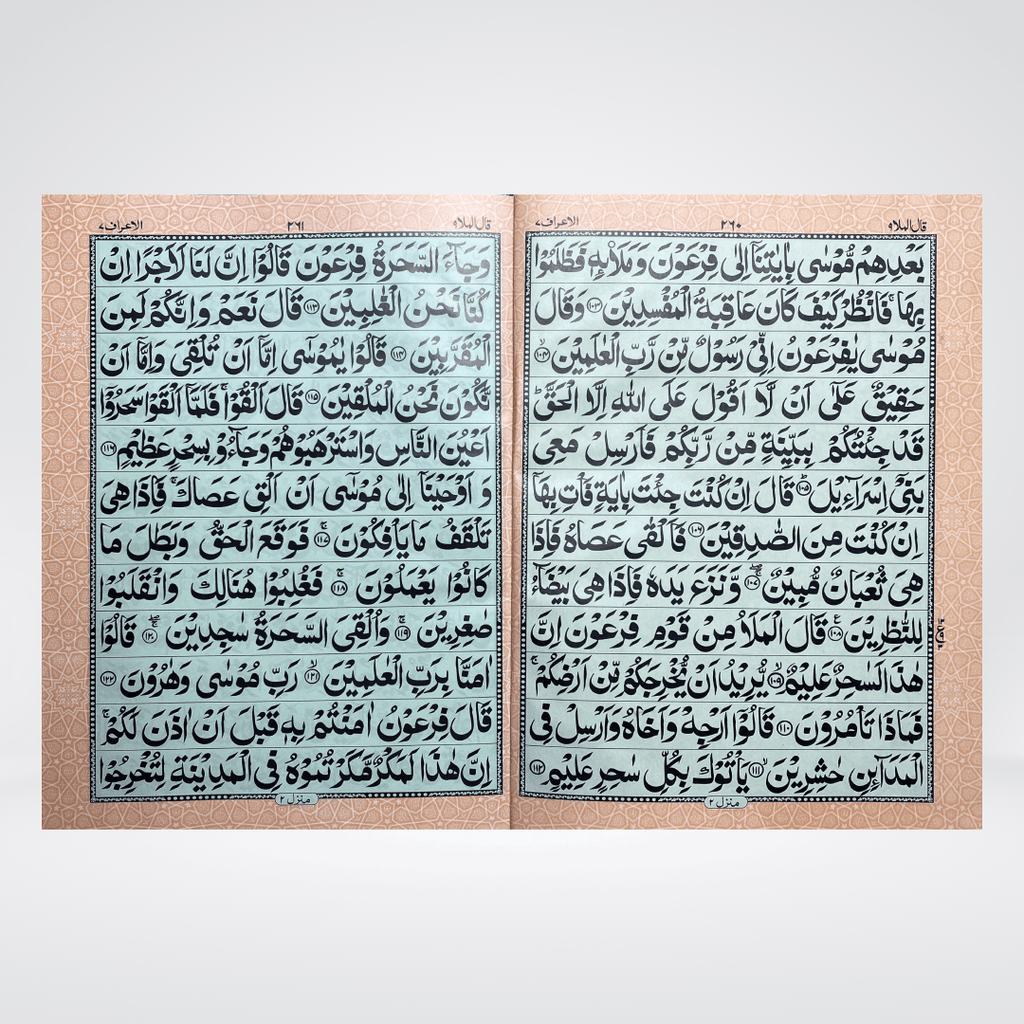 قال الملا ٩
٢٦٠
الاعراف ٧
بَعْدِهِمْ مُّوْسٰى بِاٰيٰتِنَاۤ اِلٰى فِرْعَوْنَ وَمَلَا۟ئِهٖ فَظَلَمُوْا
بِهَا ۚ فَانْظُرْ كَيْفَ كَانَ عَاقِبَةُ الْمُفْسِدِيْنَ ﴿۱۰۳﴾ وَقَالَ
مُوْسٰى يٰفِرْعَوْنُ اِنِّىْ رَسُوْلٌ مِّنْ رَّبِّ الْعٰلَمِيْنَ ﴿۱۰۴﴾ ۙ
حَقِيْقٌ عَلٰٓى اَنْ لَّاۤ اَقُوْلَ عَلَى اللّٰهِ اِلَّا الْحَقَّ ؕ
قَدْ جِئْتُكُمْ بِبَيِّنَةٍ مِّنْ رَّبِّكُمْ فَاَرْسِلْ مَعِىَ
بَنِىْۤ اِسْرَآءِيْلَ ﴿۱۰۵﴾ ؕ قَالَ اِنْ كُنْتَ جِئْتَ بِاٰيَةٍ فَاْتِ بِهَاۤ
اِنْ كُنْتَ مِنَ الصّٰدِقِيْنَ ﴿۱۰۶﴾ فَاَلْقٰى عَصَاهُ فَاِذَا
هِىَ ثُعْبَانٌ مُّبِيْنٌ ﴿۱۰۷﴾ ۖۚ وَّنَزَعَ يَدَهٗ فَاِذَا هِىَ بَيْضَآءُ
لِلنّٰظِرِيْنَ ﴿۱۰۸﴾ ع قَالَ الْمَلَاُ مِنْ قَوْمِ فِرْعَوْنَ اِنَّ
هٰذَا لَسٰحِرٌ عَلِيْمٌ ﴿۱۰۹﴾ ۙ يُّرِيْدُ اَنْ يُّخْرِجَكُمْ مِّنْ اَرْضِكُمْ ۚ
فَمَاذَا تَاْمُرُوْنَ ﴿۱۱۰﴾ قَالُوْۤا اَرْجِهْ وَاَخَاهُ وَاَرْسِلْ فِى
الْمَدَآئِنِ حٰشِرِيْنَ ﴿۱۱۱﴾ ۙ يَاْتُوْكَ بِكُلِّ سٰحِرٍ عَلِيْمٍ ﴿۱۱۲﴾
منزل ٢
قال الملا ٩
٢٦١
الاعراف ٧
وَجَآءَ السَّحَرَةُ فِرْعَوْنَ قَالُوْۤا اِنَّ لَنَا لَاَجْرًا اِنْ
كُنَّا نَحْنُ الْغٰلِبِيْنَ ﴿۱۱۳﴾ قَالَ نَعَمْ وَاِنَّكُمْ لَمِنَ
الْمُقَرَّبِيْنَ ﴿۱۱۴﴾ قَالُوْا يٰمُوْسٰٓى اِمَّاۤ اَنْ تُلْقِىَ وَاِمَّاۤ اَنْ
نَّكُوْنَ نَحْنُ الْمُلْقِيْنَ ﴿۱۱۵﴾ قَالَ اَلْقُوْا ۚ فَلَمَّاۤ اَلْقَوْا سَحَرُوْۤا
اَعْيُنَ النَّاسِ وَاسْتَرْهَبُوْهُمْ وَجَآءُوْ بِسِحْرٍ عَظِيْمٍ ﴿۱۱۶﴾
وَ اَوْحَيْنَاۤ اِلٰى مُوْسٰٓى اَنْ اَلْقِ عَصَاكَ ۚ فَاِذَا هِىَ
تَلْقَفُ مَا يَاْفِكُوْنَ ﴿۱۱۷﴾ ۚ فَوَقَعَ الْحَقُّ وَبَطَلَ مَا
كَانُوْا يَعْمَلُوْنَ ﴿۱۱۸﴾ ۚ فَغُلِبُوْا هُنَالِكَ وَانْقَلَبُوْا
صٰغِرِيْنَ ﴿۱۱۹﴾ ۚ وَاُلْقِىَ السَّحَرَةُ سٰجِدِيْنَ ﴿۱۲۰﴾ ۖۚ قَالُوْۤا
اٰمَنَّا بِرَبِّ الْعٰلَمِيْنَ ﴿۱۲۱﴾ ۙ رَبِّ مُوْسٰى وَهٰرُوْنَ ﴿۱۲۲﴾
قَالَ فِرْعَوْنُ اٰمَنْتُمْ بِهٖ قَبْلَ اَنْ اٰذَنَ لَكُمْ ۚ
اِنَّ هٰذَا لَمَكْرٌ مَّكَرْتُمُوْهُ فِى الْمَدِيْنَةِ لِتُخْرِجُوْا
منزل ٢